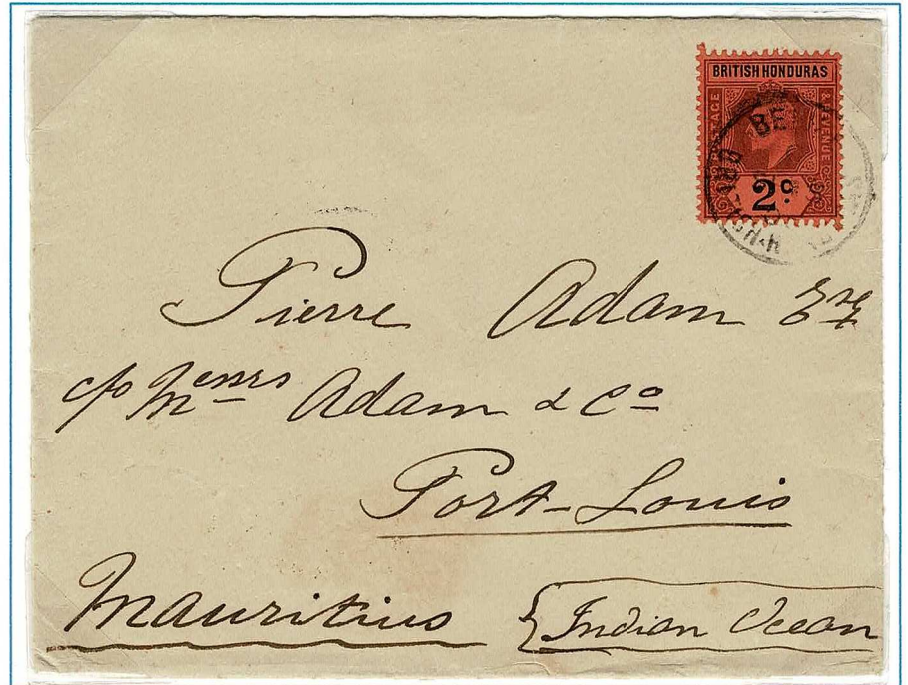 BRITISH HONDURAS
POSTAGE & REVENUE
2c
BE
Pierre Adam Esq
c/o Messrs Adam & Co
Port-Louis
Mauritius {Indian Ocean